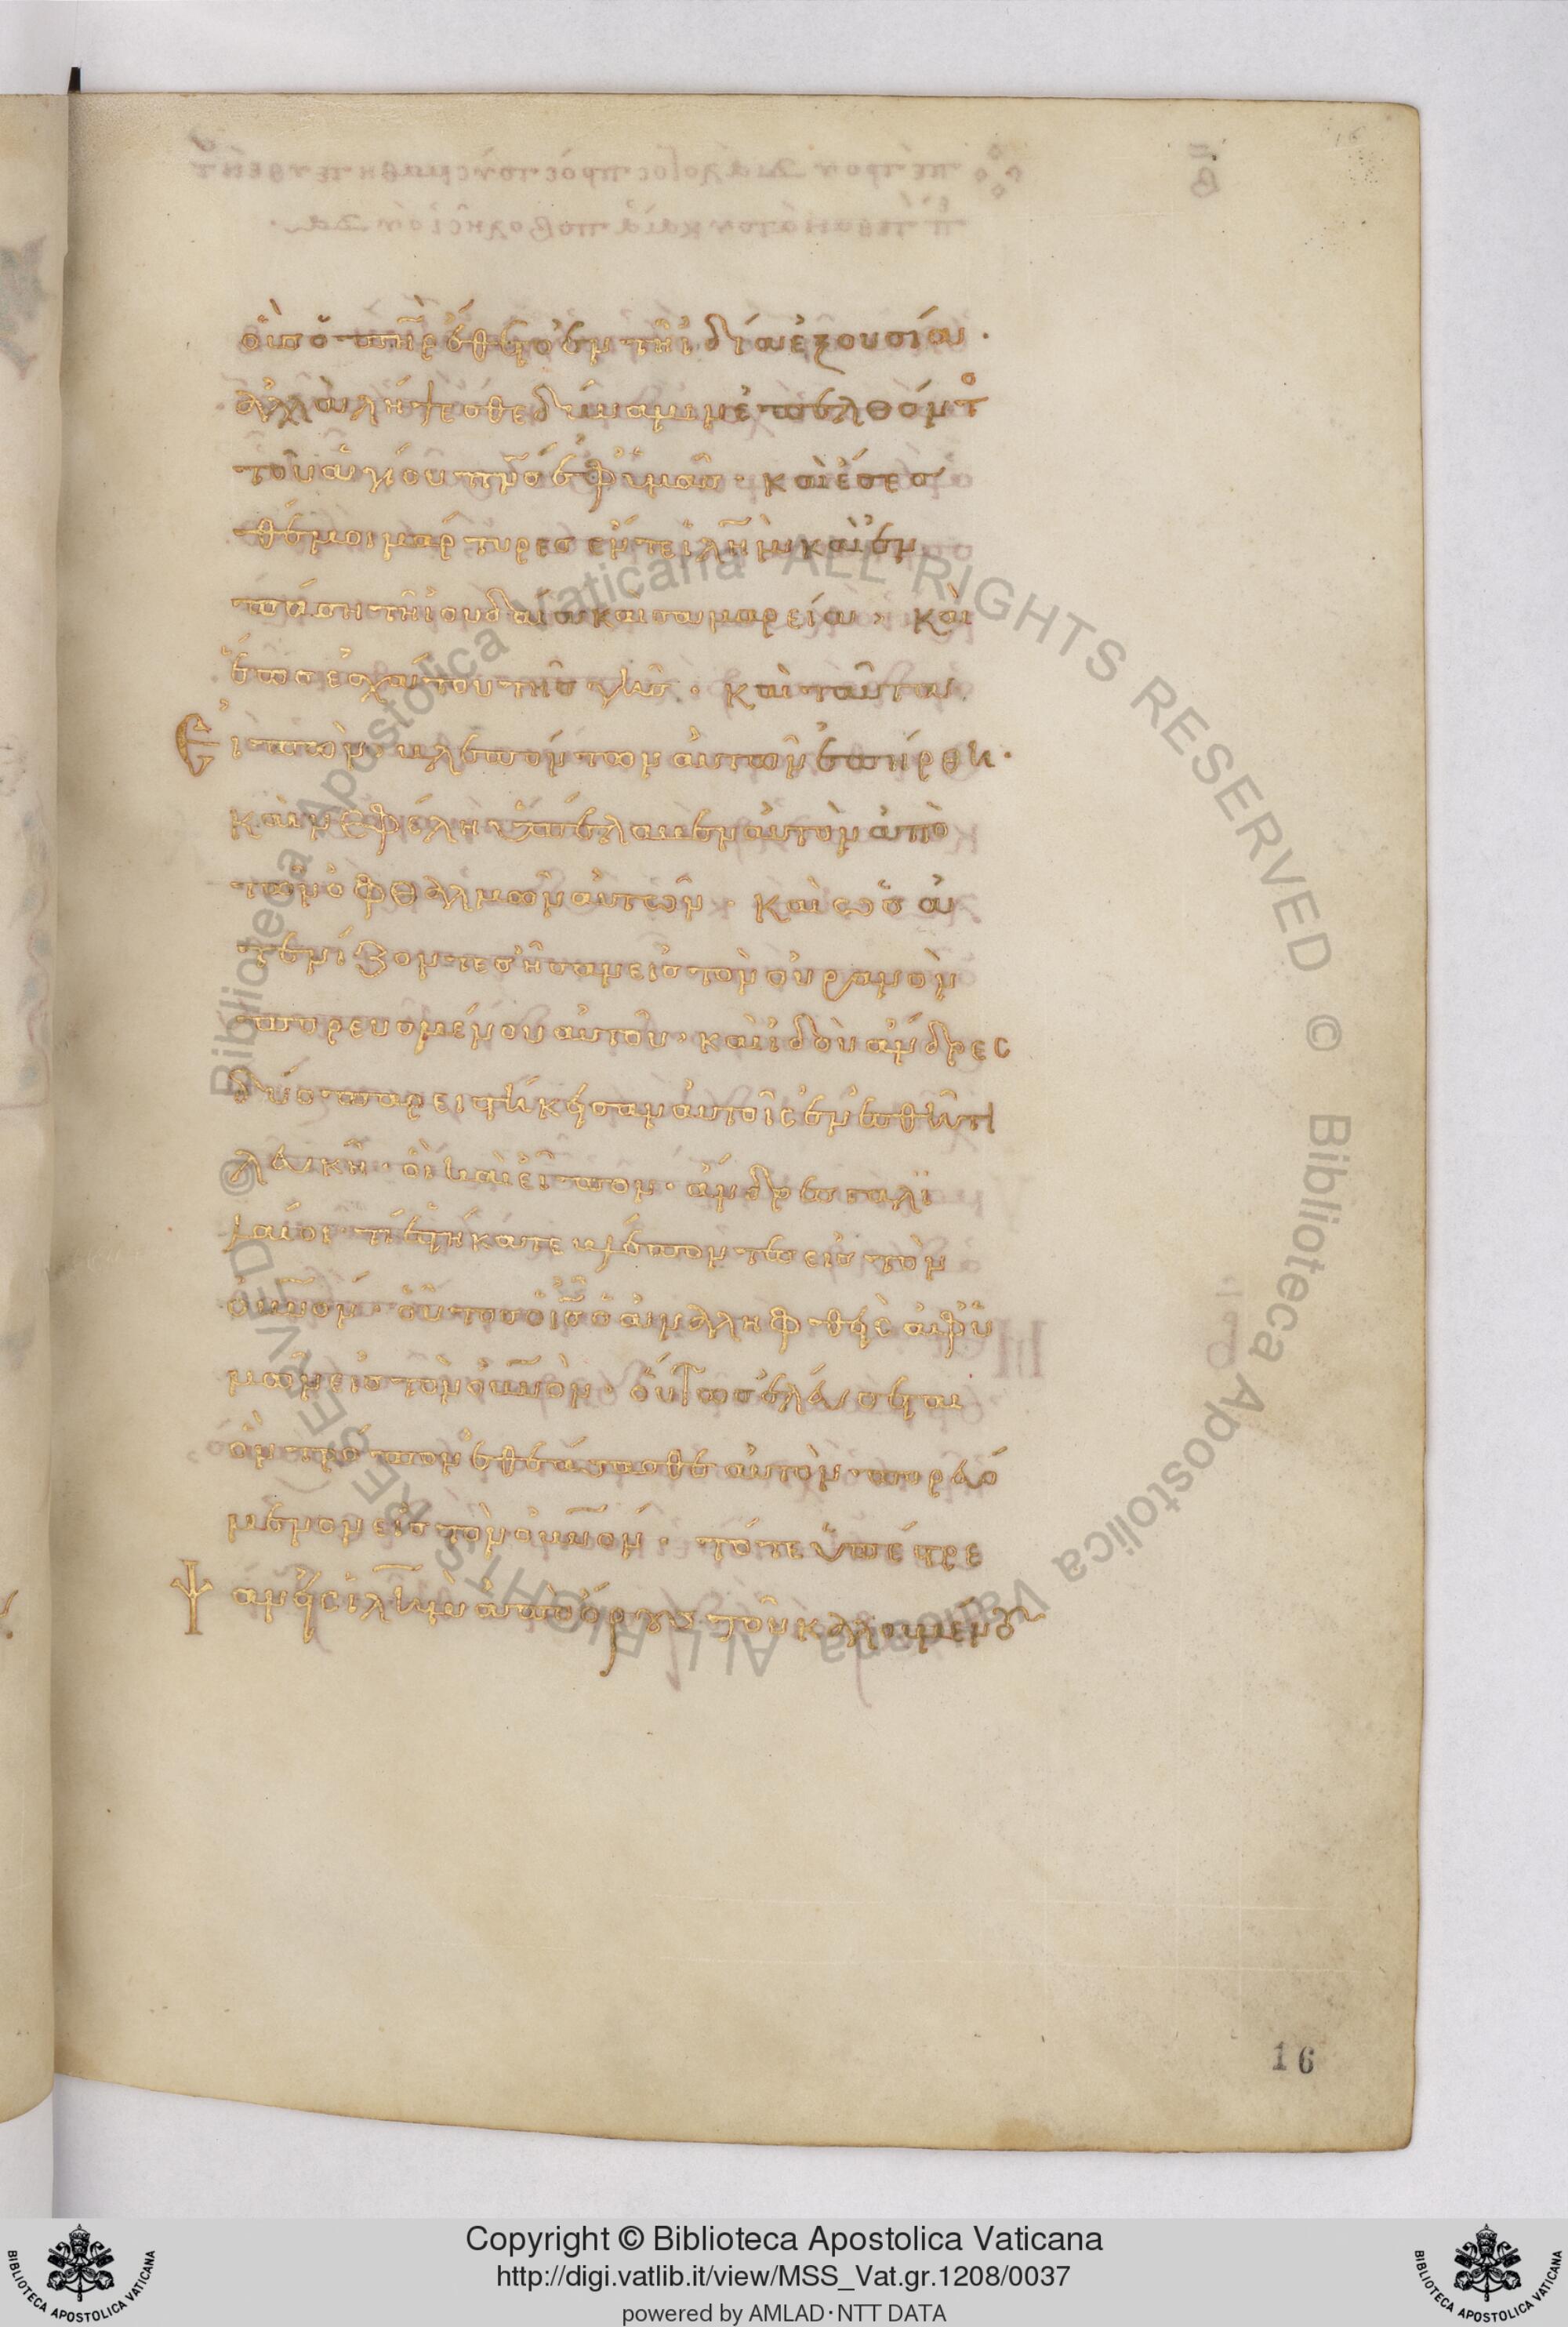 οὓσ ὁ πη̅ρ ἔθετο ἐν τῆ ἰδία ἐξουσία·
ἀλλὰ λήψεσθε δύναμιν ἐπελθόντο
τοῦ ἁγίου πν̅σ ἐφ ὑμᾶσ· καὶ ἔσεσ
θέ μοι μάρτυρεσ ἔν τε ἱλη̅μ καὶ ἐν
πάση τῆ ἰουδαία καὶ σαμαρεία· καὶ
ἕωσ ἐσχάτου τῆσ γῆσ· καὶ ταῦτα
Εἰπὼν βλεπόντων αὐτῶν ἐπήρθη·
καὶ νεφέλη ὑπέλαβεν αὐτὸν ἀπὸ
τῶν ὀφθαλμῶν αὐτῶν· καὶ ὡσ ἀ
τενίζοντεσ ἦσαν εἰσ τὸν οὐρανὸν
πορευομένου αὐτοῦ· καὶ ἰδοὺ ἄνδρες
δύο παρειστήκησαν αὐτοῖς ἐν ἐσθῆτι
λευκῆ· οἳ καὶ εἶπον· ἄνδρεσ γαλι
λαῖοι· τί ἑστήκατε βλέποντεσ εἰσ τὸν
οὐν̅όν· οὗτοσ ὁ ι̅σ ὁ ἀναληφθεὶς ἀφ ὑ
μῶν εἰσ τὸν οὐν̅όν· οὕτωσ ἐλεύσεται
ὃν τρόπον ἐθεάσασθε αὐτὸν πορευό
μενον εἰσ τὸν οὐν̅όν· τότε ὑπέστρε
ψαν εἰς ἱλη̅μ ἀπὸ ὄρουσ τοῦ καλουμένου
16
Copyright © Biblioteca Apostolica Vaticana
http://digi.vatlib.it/view/MSS_Vat.gr.1208/0037
powered by AMLAD·NTT DATA
BIBLIOTECA APOSTOLICA VATICANA
BIBLIOTECA APOSTOLICA VATICANA
Biblioteca Apostolica Vaticana ALL RIGHTS RESERVED © Biblioteca Apostolica Vaticana ALL RIGHTS RESERVED ©